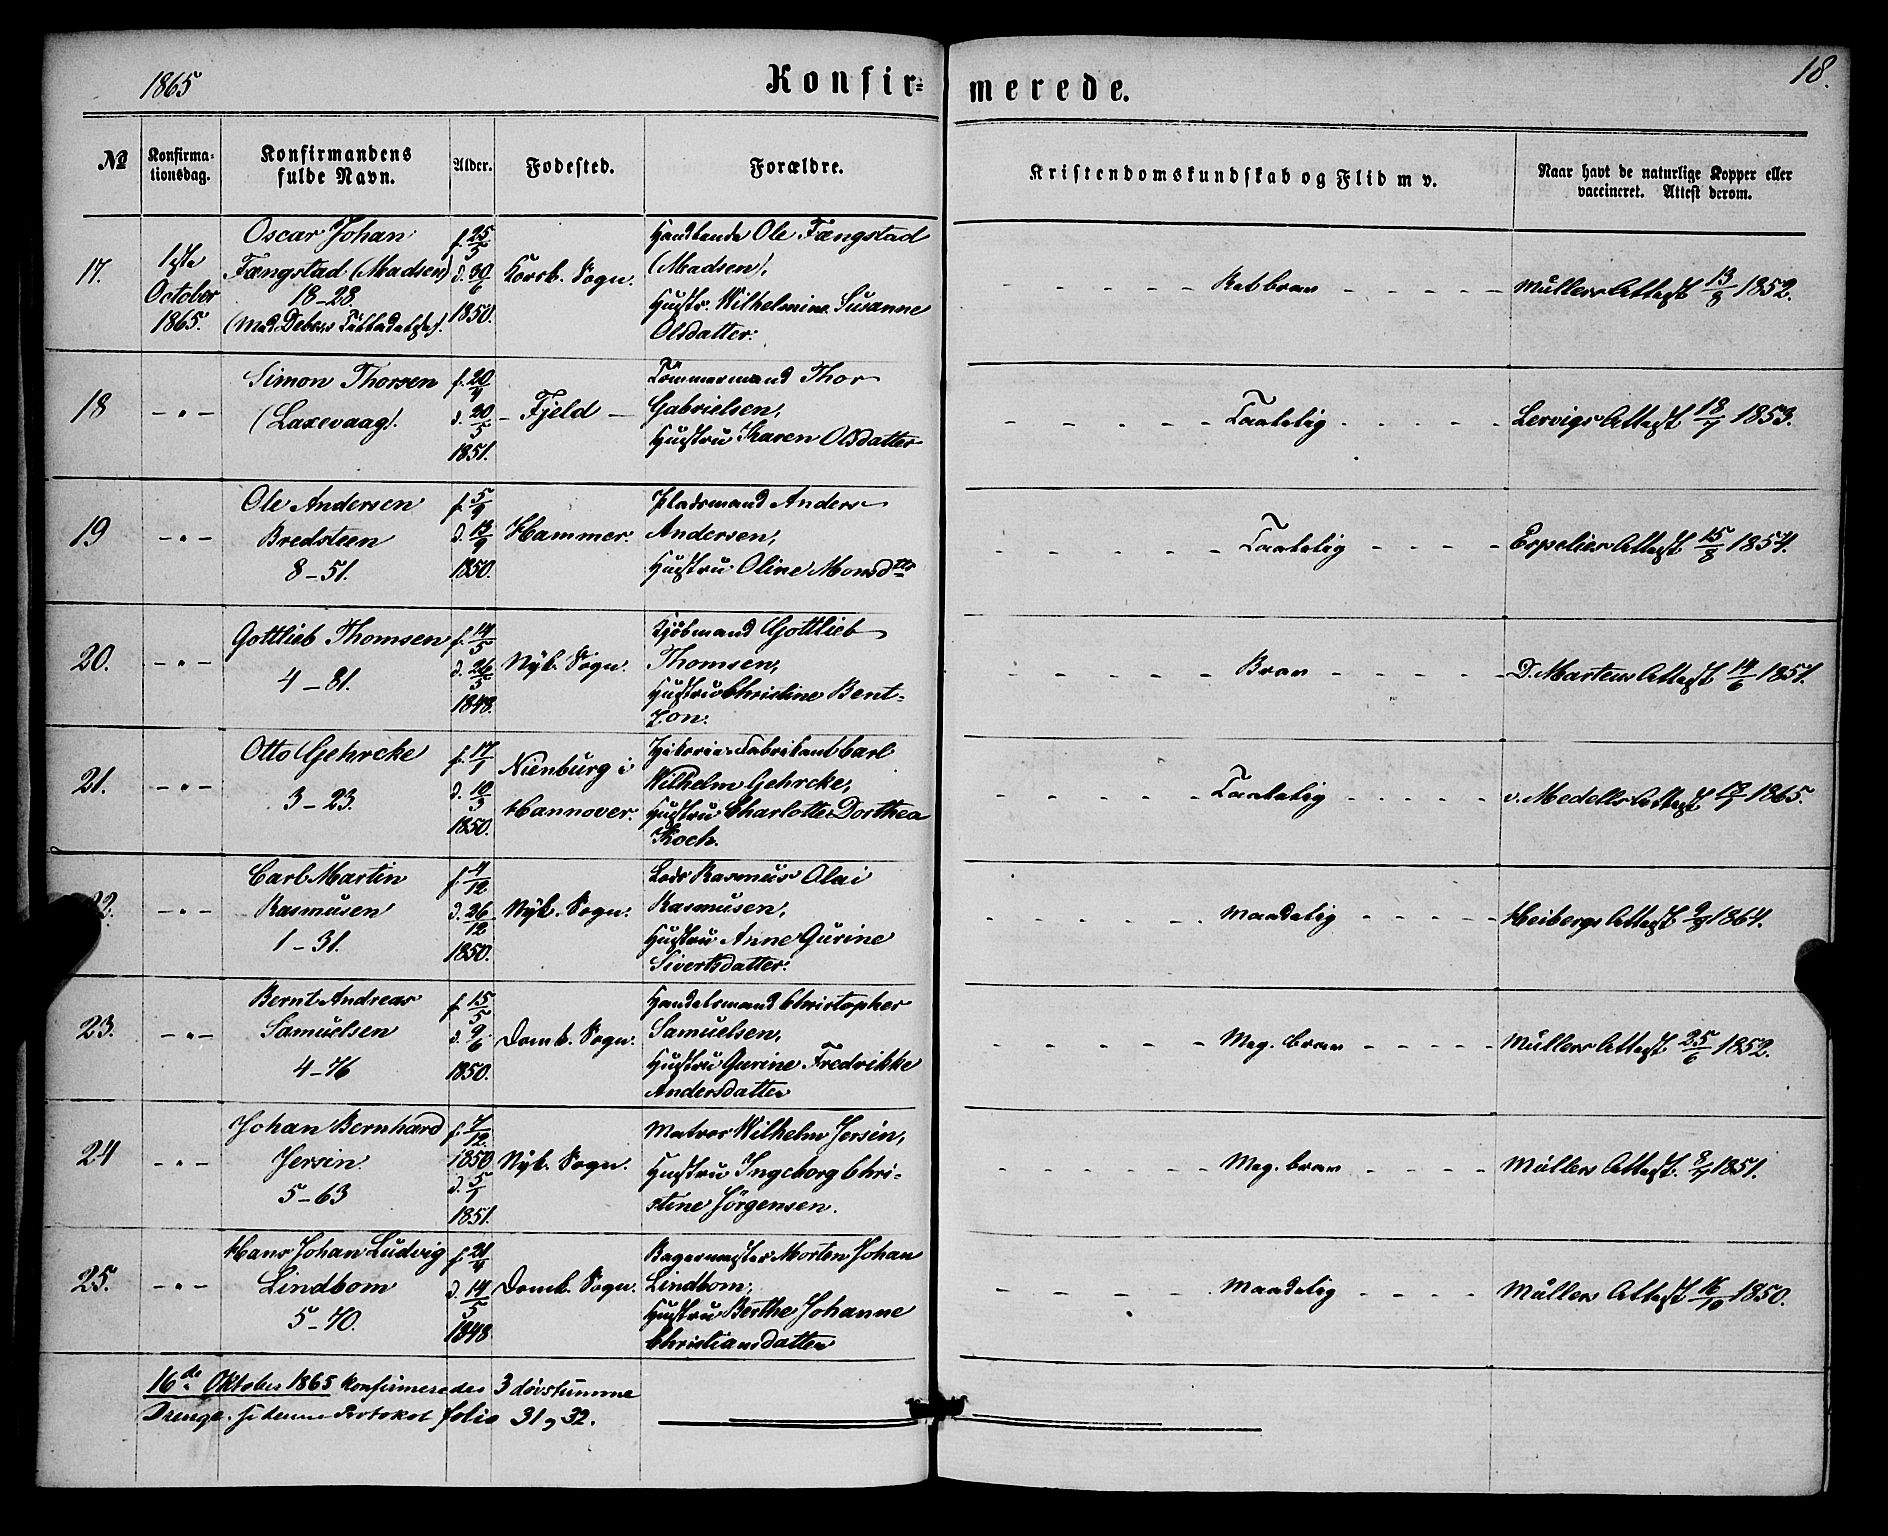 1865
Konfir-
merede.
18.
No
Konfirma-
tionsdag.
Konfirmandens
fulde Navn.
Alder.
Fødested.
Forældre.
Kristendomskundskab og Flid m v.
Naar havt de naturlige Kopper eller
vaccineret. Attest derom.
17.
1ste
October
1865.
Oscar Johan
Fængstad (Madsen)
18-28.
f. 25/5
d. 30/6
1850.
Korsk. Sogn.
Handlende Ole Fængstad
(Madsen),
Hustr. Wilhelmine Susanne
Olsdatter.
- - - - - Retbrav - - - - -
Müllers Attest 13/8 1852.
18
- " -
Simon Thorsen
(Laxevaag).
f. 20/4
d. 20/5
1851.
- Fjeld -
Tömmermand Thor
Gabrielsen,
Hustru Karen Olsdatter
- - - - - Taalelig - - - -
Lervigs Attest 18/7 1853.
19
- " -
Ole Andersen
Bredsteen
8-51.
d. 13/9
1850.
Hammer.
Pladsmand Anders
Andersen,
Hustru Oline Monsdttr
- - - - - Taalelig - - - -
Attest 15/8 1854.
20.
- " -
Gottlieb Thomsen
4-81.
f. 14/5
d. 26/5
1848.
Nyk. Sogn.
Kjöbmand Gottlieb
Thomsen,
Hustru Christine Bent-
zon.
- - - - - Brav - - - - -
D. Martens Attest 14/6 1851.
21.
- " -
Otto Gehrcke
3-23.
f. 17/1
d. 10/3
1850.
Nienburg i
Hannover.
Fabrikant Carl
Wilhelm Gehrcke,
Hustru Charlotte Dorthea
Koch.
- - - - - Taalelig - - - - -
v. Medells Attest 1865.
22.
- " -
Carl Martin
Rasmusen
1-31.
f. 4/12
d. 26/12
1850.
Nyk. Sogn.
Lods Rasmus Olai
Rasmusen,
Hustru Anne Gurine
Sivertsdatter.
- - - - - - Maadelig - - - - -
Heibergs Attest 9/8 1864.
23.
- " -
Bernt Andreas
Samuelsen
4-76
f. 15/5
d. 9/6
1850.
Domk. Sogn.
Handelsmand Christopher
Samuelsen,
Hustru Gurine Fredrikke
Andersdatter
- - - - - Meg. brav - - - - -
Müllers Attest 25/6 1852.
24
- " -
Johan Bernhard
Jersin
5-63
f. 7/12.
1850
d. 5/1
1851.
Nyk. Sogn.
Matros Wilhelm Jersin,
Hustru Ingeborg Chri-
stine Jørgensen.
- - - - - - Meg. brav - - - -
Müllers Attest. 1851.
25.
- " -
Hans Johan Ludvig
Lindbom
5-70.
f. 21/4
d. 14/5
1848
Domk. Sogn.
Bagermester Morten Johan
Lindbom,
Hustru Berthe Johanne
Christiansdatter
- - - - - Maadelig - - - -
Müllers Attest 16/10 1850.
16de Oktober 1865 konfirmeredes 3 døvstumme
Drenge. se denne Protokol folio 31 og 32.